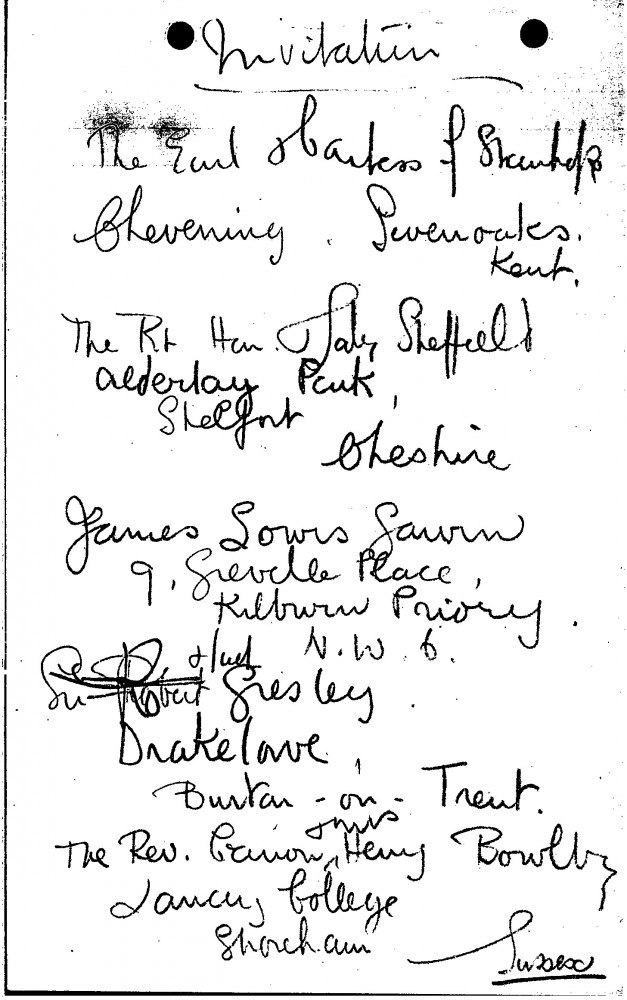 Invitation
The Earl & Cautess of Stanhope
Chevening . Sevenoaks.
Kent.
The Rt Hon. & Lady Sheffield
Alderley Park,
Cheshire
James Lowis Garvin
9, Greville Place,
Kilburn Priory.
N.W. 6.
Sir Robert & Lady Gresley.
Drakelowe,
Burton - on - Trent.
The Rev. Canon, Henry Bowlby
Lancing College
Shoreham
Sussex